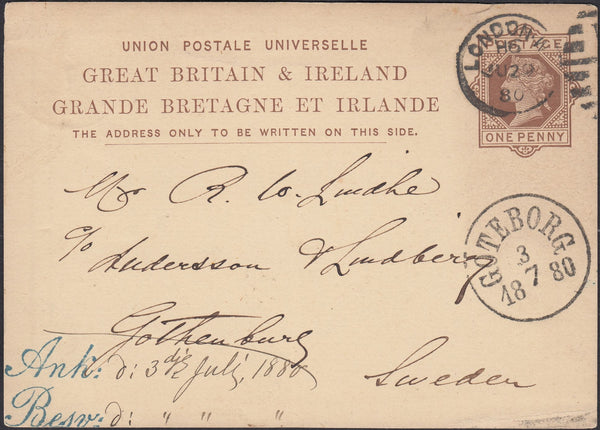 UNION POSTALE UNIVERSELLE
GREAT BRITAIN & IRELAND
GRANDE BRETAGNE ET IRLANDE
THE ADDRESS ONLY TO BE WRITTEN ON THIS SIDE.
POSTAGE
ONE PENNY
LONDON
80
Mr R. W. Lindhe
c/o Andersson & Lindberg
Gothenburg
Sweden
GÖTEBORG
3
7
18 80
Ank: d: 3 Juli, 1880
Besv: d: " " "